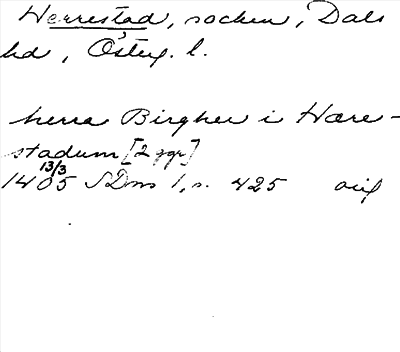 Herrestad, socken, Dals
hd, Österg. l.
herra Birgher i Hære-
stadum [2 ggr]
13/3
1405 SDns 1, s. 425 orig